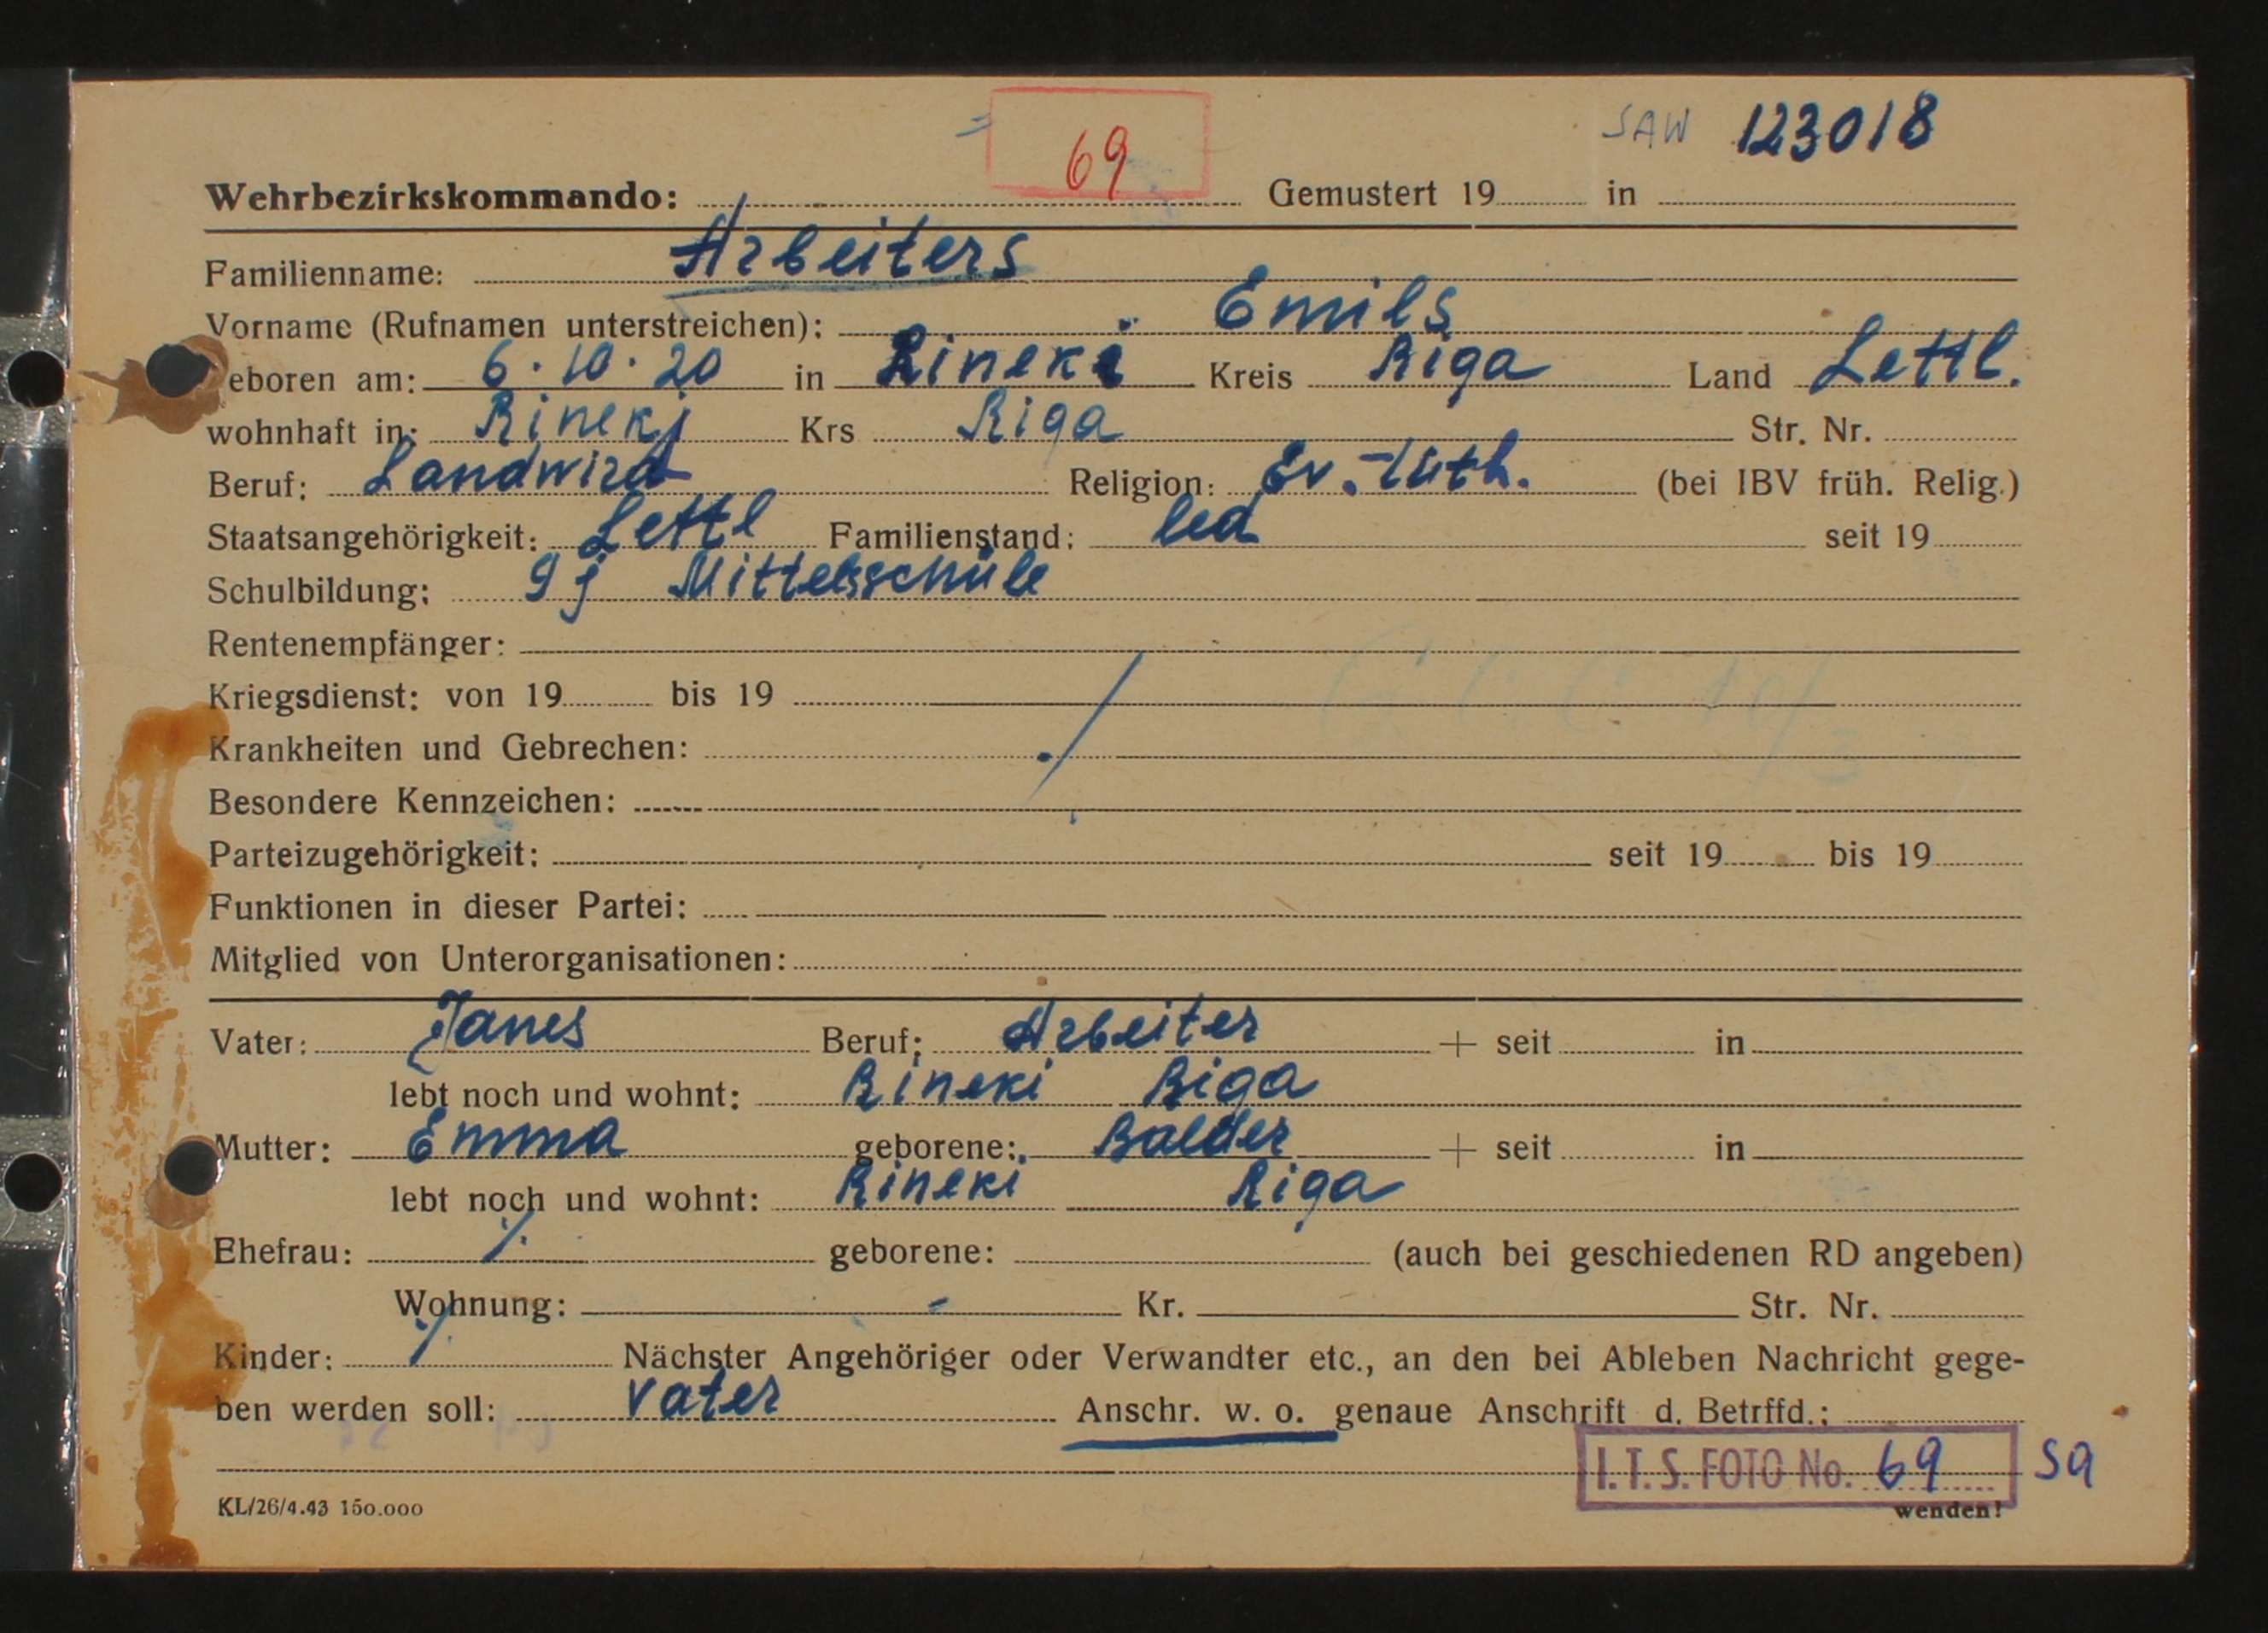 69 SAW 123018
Wehrbezirkskommando: Gemustert 19 in
Familienname: Arbeiters
Vorname (Rufnamen unterstreichen): Emils
eboren am: 6.10.20 in Rineki Kreis Riga Land Lettl.
wohnhaft in: Rineki Krs Riga Str. Nr.
Beruf: Landwird Religion: Ev.-luth. (bei IBV früh. Relig.)
Staatsangehörigkeit: Lettl Familienstand: led seit 19
Schulbildung: 9j Mittelsschule
Rentenempfänger:
Kriegsdienst: von 19 bis 19
Krankheiten und Gebrechen: ./
Besondere Kennzeichen:
Parteizugehörigkeit: seit 19 bis 19
Funktionen in dieser Partei:
Mitglied von Unterorganisationen:
Vater: Janes Beruf: Arbeiter + seit in
lebt noch und wohnt: Rineki Riga
Mutter: Emma geborene: Balder + seit in
lebt noch und wohnt: Rineki Riga
Ehefrau: ./. geborene: (auch bei geschiedenen RD angeben)
Wohnung: - Kr. Str. Nr.
Kinder: ./. Nächster Angehöriger oder Verwandter etc., an den bei Ableben Nachricht gege-
ben werden soll: Vater Anschr. w. o. genaue Anschrift d. Betrffd.:
I.T.S. FOTO No. 69 Sa
KL/26/4.43 150.000 wenden!